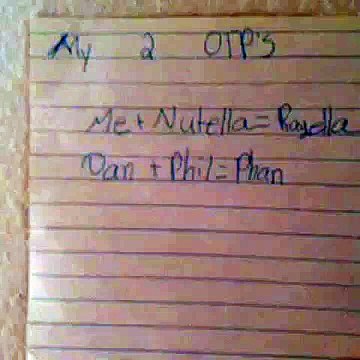 My 2 OTP's
Me + Nutella =
Dan + Phil = Phan